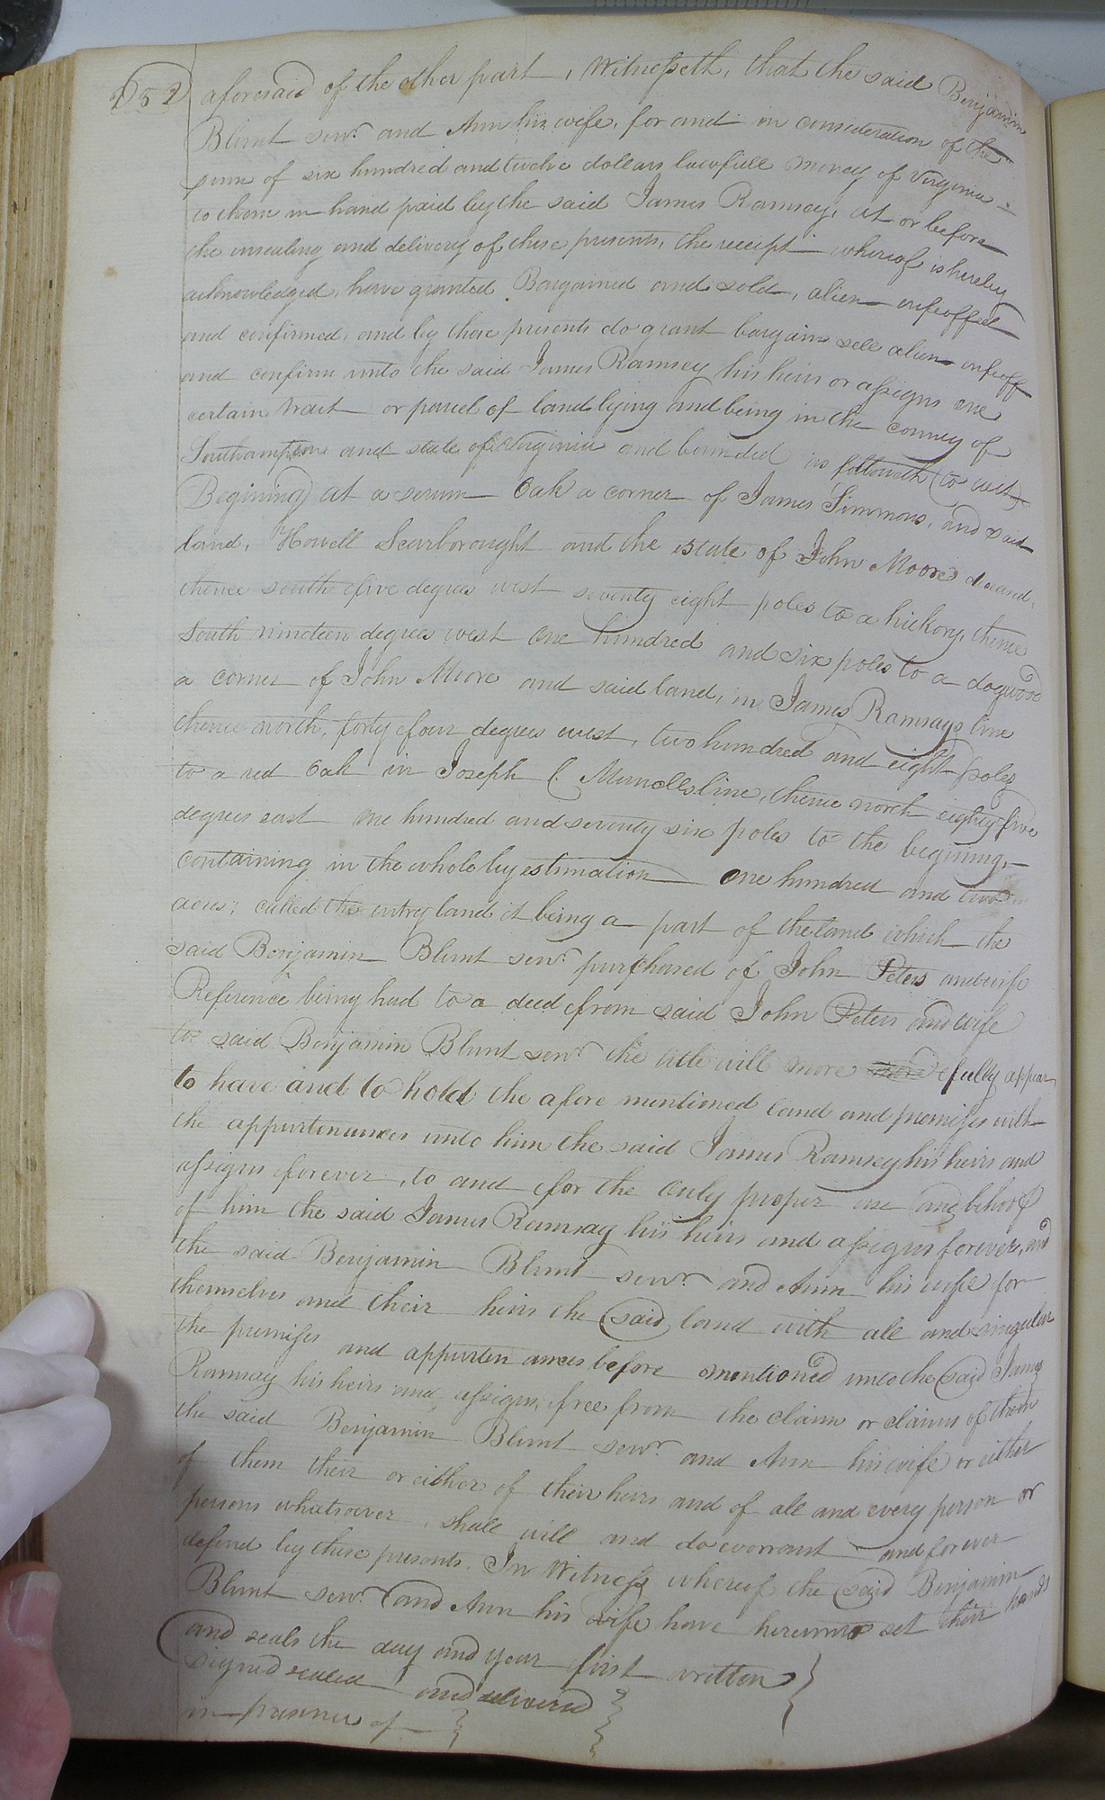 152
aforesaid of the other part, Witnesseth, that the said Benjamin
Blunt senr. and Ann his wife, for and in consideration of the
sum of six hundred and twelve dollars lawfull money of Virginia
to them in hand paid by the said James Ramsay, at or before
the ensealing and delivery of these presents, the receipt whereof is hereby
acknowledged, have granted Bargained and sold, alien enfeoffed
and confirmed, and by these presents do grant bargain sell alien enfeoff
and confirm unto the said James Ramsey his heirs or assigns one
certain tract or parcel of land lying and being in the county of
Southampton and state of Virginia and bounded as followeth (to wit)
Begining at a oak a corner of James Simmons, and said
land, Howell Scarborought and the estate of John Moore deceand.
thence south five degrees west seventy eight poles to a hickory, thence
South nineteen degrees west one hundred and six poles to a dogwood
a corner of John Moore and said land, in James Ramsays line
thence north, forty four degrees west, two hundred and eight poles
to a red oak in Joseph C line, thence north eighty five
degrees east one hundred and seventy six poles to the begining,
containing in the whole by estimation one hundred and two
acres; called the entry land it being a part of the land which the
said Benjamin Blunt senr. purchased of John Peters and wife
Reference being had to a deed from said John Peters and wife
to said Benjamin Blunt senr. the title will more fully appear
to have and to hold the afore mentioned land and premises with
the appurtenances unto him the said James Ramsey his heirs and
assigns forever, to and for the only proper use and behoof
of him the said James Ramsay his heirs and assigns forever, and
the said Benjamin Blunt senr. and Ann his wife for
themselves and their heirs the said land with all and singular
the premises and appurtenances before mentioned unto the said James
Ramsay his heirs and assigns, free from the claim or claims of them
the said Benjamin Blunt senr. and Ann his wife or either
of them their or either of their heirs and of all and every person or
persons whatsoever shall will and do warrant and forever
defend by these presents. In Witness whereof the said Benjamin
Blunt senr. and Ann his wife have hereunto set their hands
and seals the day and year first written
signed sealed and delivered
in presence of